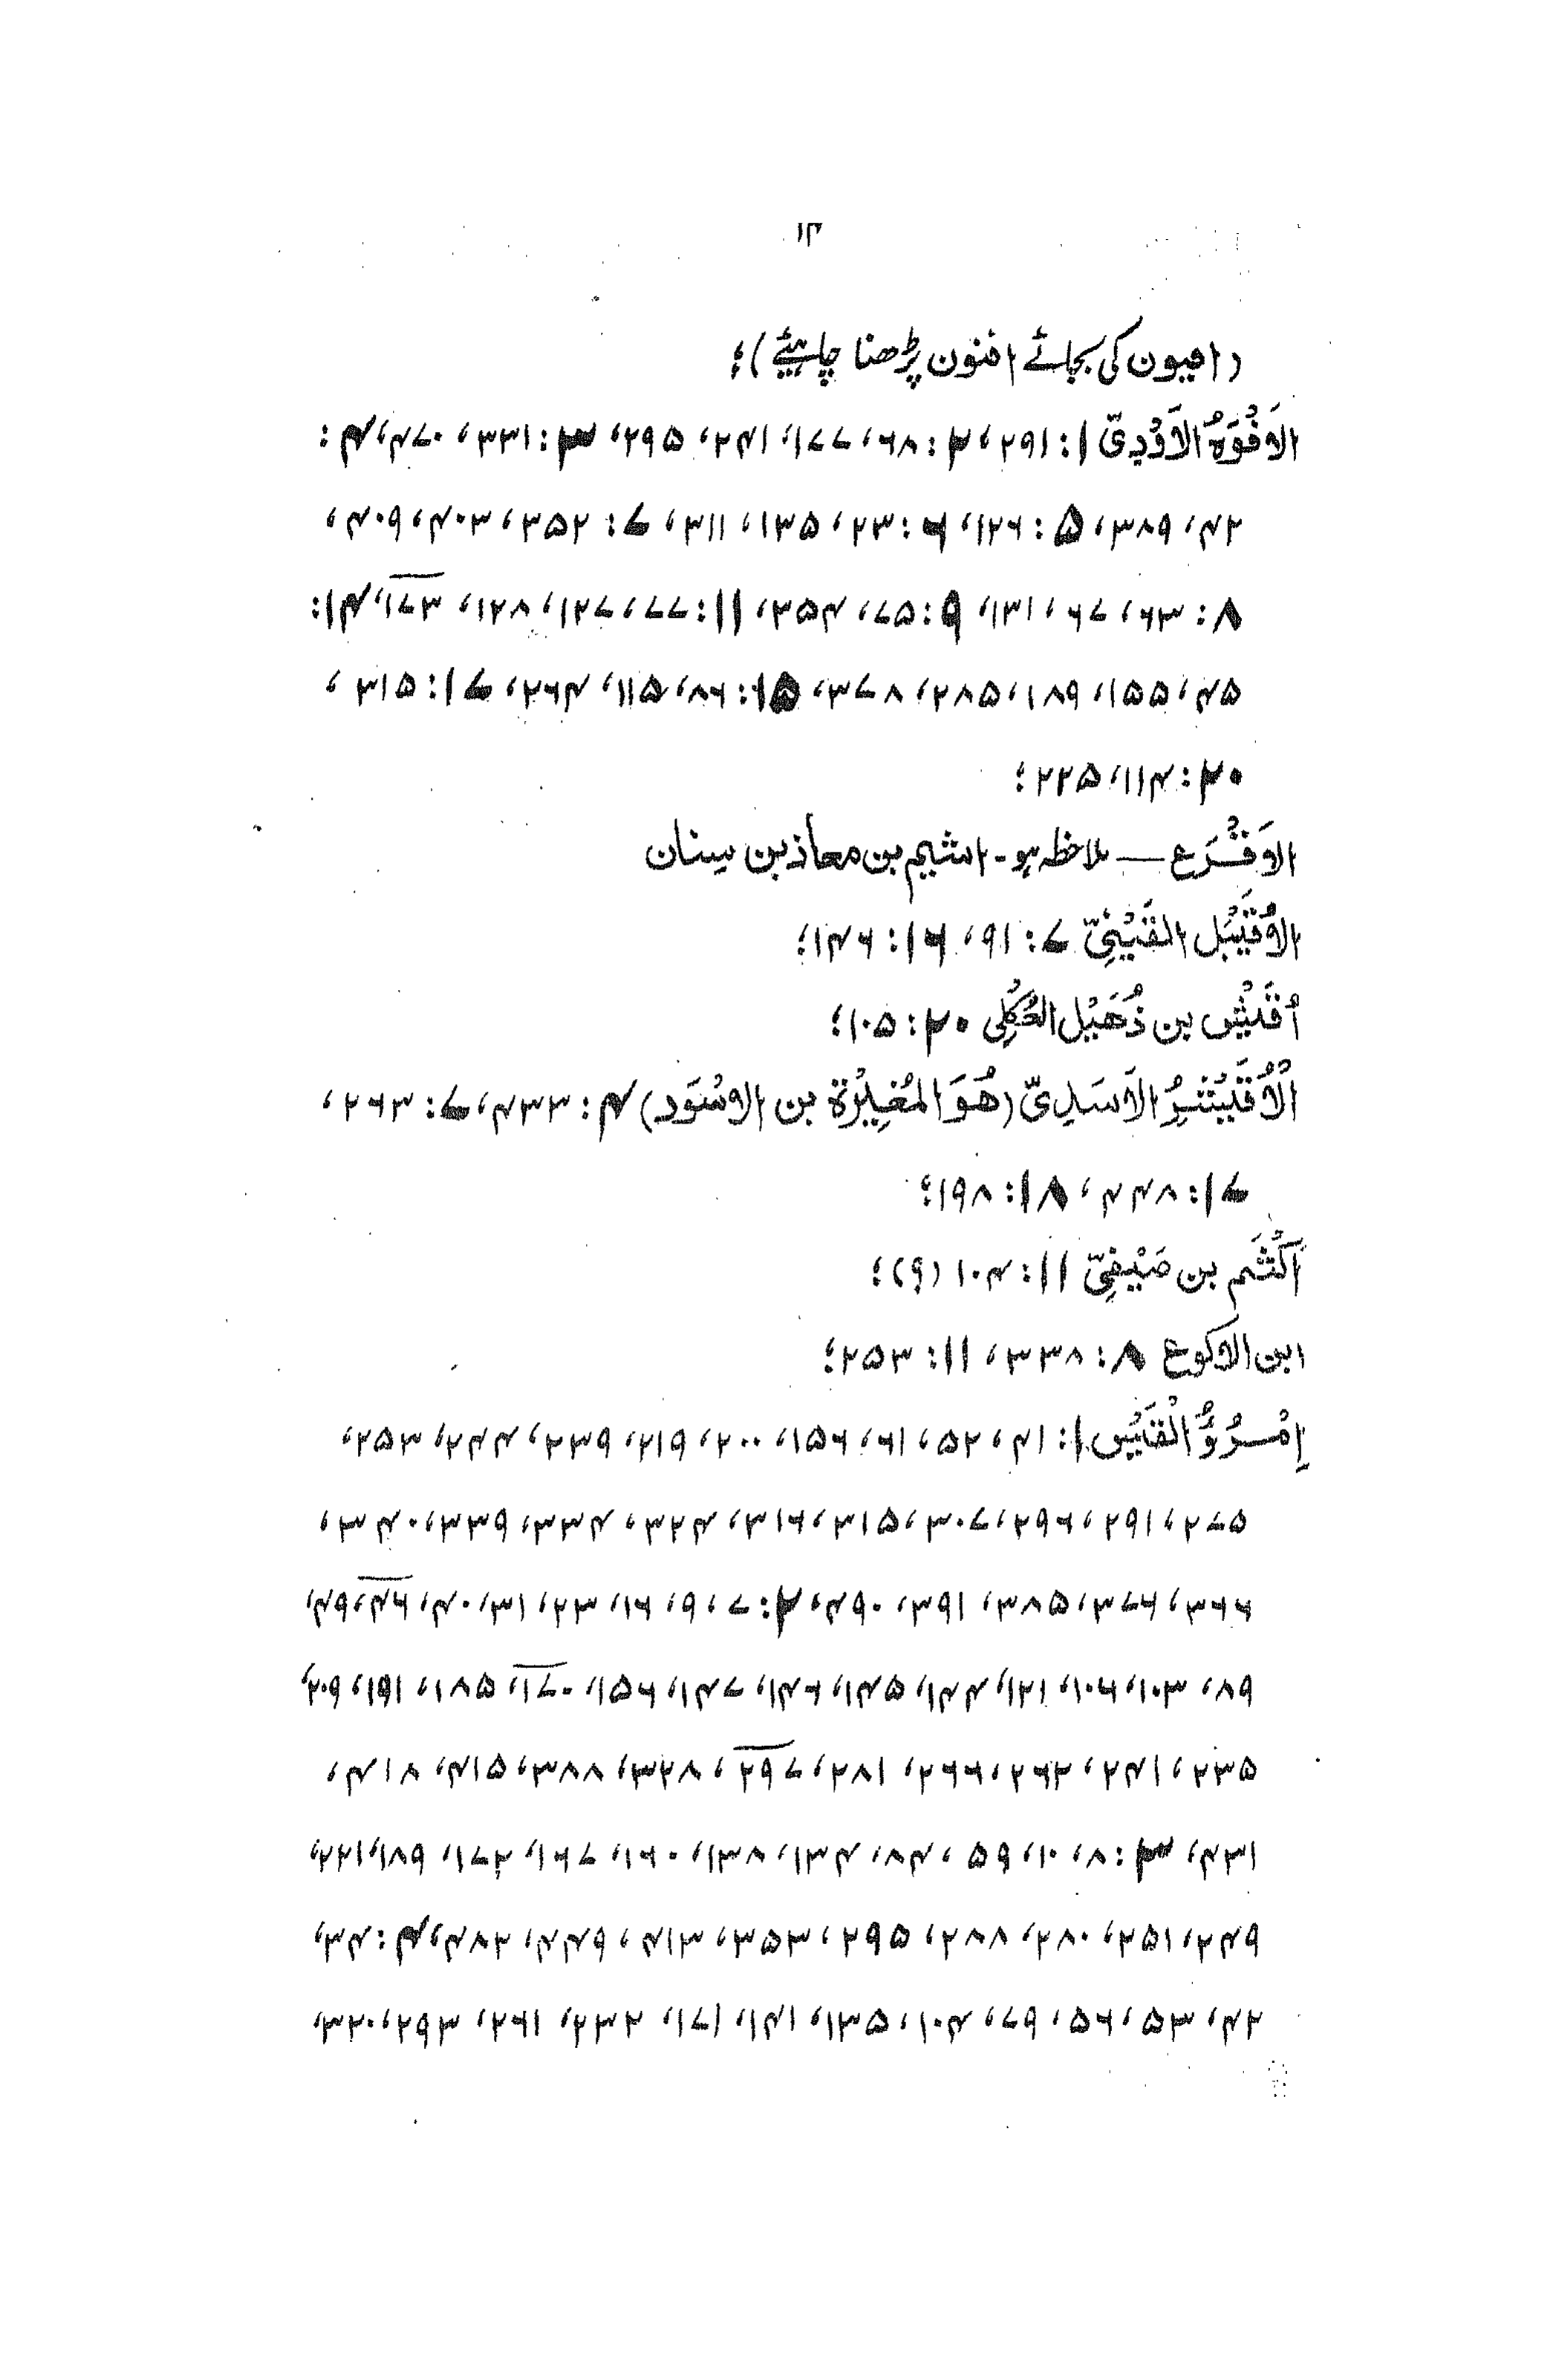 ۱۳
(امیون کی بجائے افنون پڑھنا چاہیئے)؛
الاَفْوَهُ الاَوْدِیّ ۱: ۲۹۱، ۲: ۶۸، ۱۷۷، ۲۴۱، ۲۹۵، ۳: ۳۳۱، ۴۷۰، ۴:
۴۲، ۳۸۹، ۵: ۱۲۶، ۶: ۲۳، ۱۳۵، ۳۱۱، ۷: ۳۵۲، ۴۰۳، ۴۰۹،
۸: ۶۳، ۶۷، ۱۳۱، ۹: ۷۵، ۳۵۴، ۱۱: ۷۷، ۱۲۷، ۱۲۸، ۱۷۳، ۱۴:
۴۵، ۱۵۵، ۱۸۹، ۲۸۵، ۳۷۸، ۱۵: ۸۶، ۱۱۵، ۲۶۴، ۱۷: ۳۱۵،
۲۰: ۱۱۴، ۲۲۵؛
الاَقْرَع — ملاحظہ ہو۔ اشیم بن معاذ بن سِنان
الاُقَیْبَل القَیْنِیّ ۷: ۹۱، ۱۶: ۱۴۶؛
اُقَیْش بن ذُهَیْل العُکْلِی ۲۰: ۱۰۵؛
الْاُقَیْشِرُ الاَسَدِیّ (هُوَ المُغِیْرَة بن الاسْوَد) ۴: ۴۳۳، ۷: ۲۶۳،
۱۷: ۴۴۸، ۱۸: ۱۹۸؛
اَکْثَم بن صَیْفِیّ ۱۱: ۱۰۴ (۹)؛
ابن الاکوع ۸: ۳۳۸، ۱۱: ۲۵۳؛
اِمْرُؤُ الْقَیْس ۱: ۴۱، ۵۲، ۶۱، ۱۵۶، ۲۰۰، ۲۱۹، ۲۳۹، ۲۴۴، ۲۵۳،
۲۷۵، ۲۹۱، ۲۹۶، ۳۰۷، ۳۱۵، ۳۱۶، ۳۲۴، ۳۳۴، ۳۳۹، ۳۴۰،
۳۶۶، ۳۷۶، ۳۷۵، ۳۹۱، ۴۹۰، ۲: ۷، ۹، ۱۶، ۲۳، ۳۱، ۴۰، ۴۶، ۴۹،
۸۹، ۱۰۳، ۱۰۶، ۱۲۱، ۱۴۴، ۱۴۵، ۱۴۶، ۱۴۷، ۱۵۶، ۱۷۰، ۱۸۵، ۱۹۱، ۲۰۹،
۲۳۵، ۲۴۱، ۲۶۲، ۲۶۶، ۲۸۱، ۲۹۷، ۳۲۸، ۳۸۸، ۴۱۵، ۴۱۸،
۴۳۱، ۳: ۸، ۱۰، ۵۹، ۸۴، ۱۳۴، ۱۳۸، ۱۶۰، ۱۶۷، ۱۷۲، ۱۸۹، ۲۲۱،
۲۴۹، ۲۵۱، ۲۸۰، ۲۸۸، ۲۹۵، ۳۵۳، ۴۱۳، ۴۴۹، ۴۸۲، ۴: ۳۴،
۴۲، ۵۳، ۵۶، ۷۹، ۱۰۴، ۱۳۵، ۱۴۱، ۱۷۱، ۲۳۲، ۲۶۱، ۲۹۳، ۳۲۰،